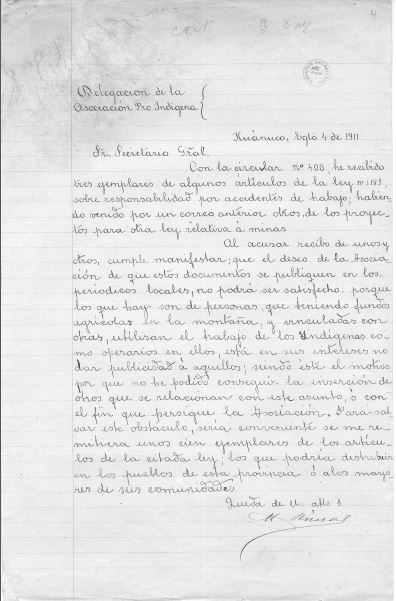 4
cont
Delegación de la
Asociación Pro Indígena
Huánuco, Agto 4 de 1911
Sr. Secretario Gral.
Con la circular nº 400, he recibido
tres ejemplares de algunos artículos de la ley nº 1183,
sobre responsabilidad por accidentes de trabajo; habien
do venido por un correo anterior otros, de los proyec-
tos para otra ley relativa á minas
Al acusar recibo de unos y
otros, cumple manifestar; que el deseo de la Asocia-
ción de que estos documentos se publiquen en los
periodicos locales, no podrá ser satisfecho: porque
los que hay son de personas, que teniendo fundos
agrícolas en la montaña, y vinculadas con
otras, utilisan el trabajo de los Yndigenas co-
mo operarios en ellos, está en sus intereses no
dar publicidad á aquellos; siendo éste el motivo
por que no he podido conseguir la inserción de
otros que se relacionan con este asunto, ó con
el fin que persigue la Asociación. Para sal-
var este obstáculo, seria conveniente se me re-
mitiera unos cien ejemplares de los artícu-
los de la citada ley, los que podria distribuir
en los pueblos de esta provincia ó a los mayo-
res de sus comunidades
Queda de U. atto S.